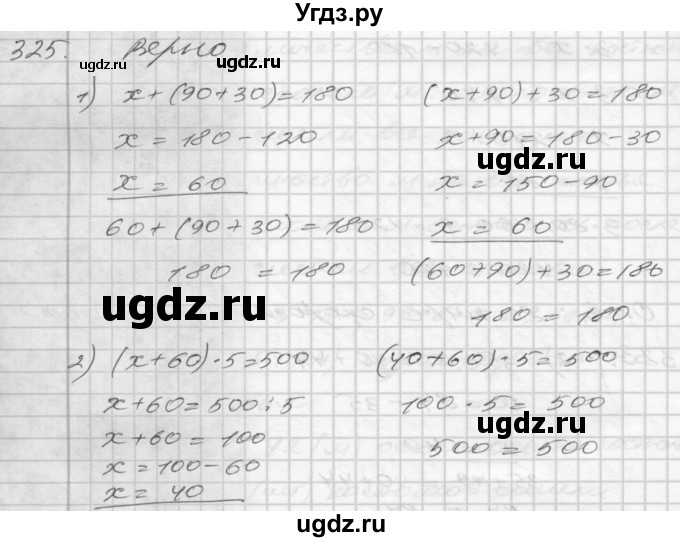 Угдз.ру
325. Верно
1) x+(90+30)=180
x = 180-120
x = 60
60+(90+30)=180
180 = 180
(x+90)+30=180
x+90=180-30
x=150-90
x = 60
(60+90)+30=180
180=180
2) (x+60)·5=500
x+60=500:5
x+60=100
x=100-60
x=40
(40+60)·5=500
100·5=500
500=500
ugdz.ru
ugdz.ru
ugdz.ru
ugdz.ru
ugdz.ru
ugdz.ru
ugdz.ru